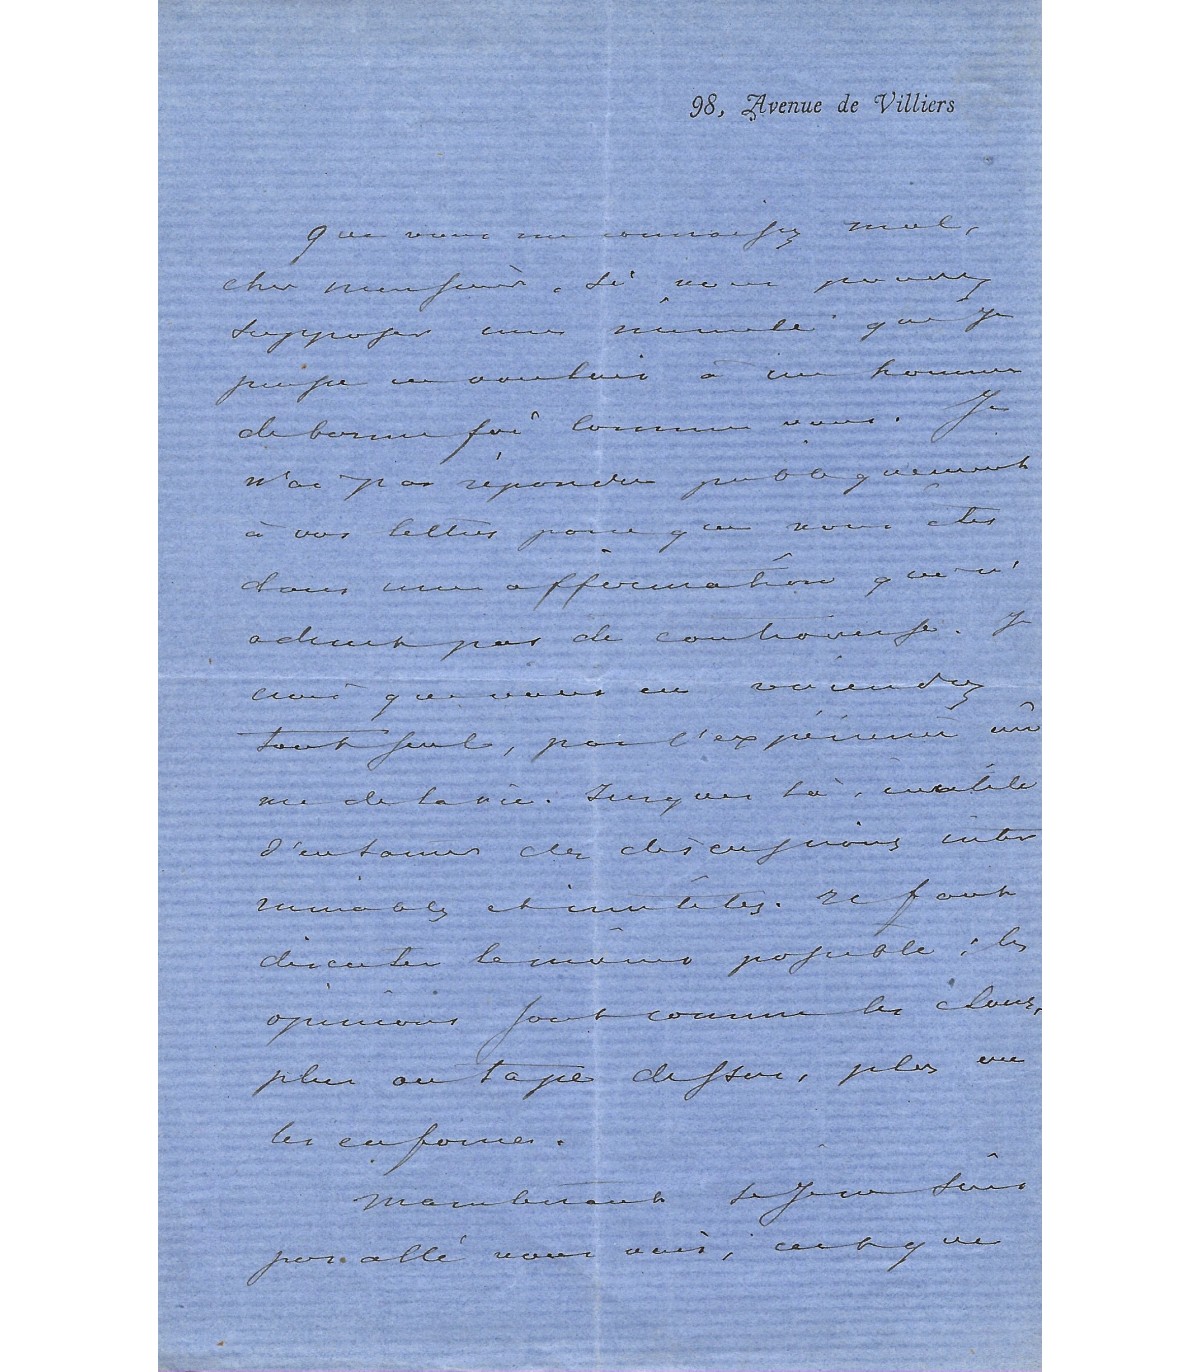 98, Avenue de Villiers
Que vous me connaissez mal,
cher monsieur, si vous pouvez
supposer une minute que je
puisse en vouloir à un homme
de bonne foi comme vous. Je
n'ai pas répondu publiquement
à vos lettres parce que vous êtes
dans une affirmation qui n'
admet pas de controverse. Je
crois que vous en reviendrez
tout seul, par l'expérience mê
me de la vie. Jusque là, inutile
d'entamer des discussions inter
minables et inutiles. Il faut
discuter le moins possible ; les
opinions sont comme les clous,
plus on tape dessus, plus on
les enfonce.
Maintenant si je ne suis
pas allé vous voir, c'est que